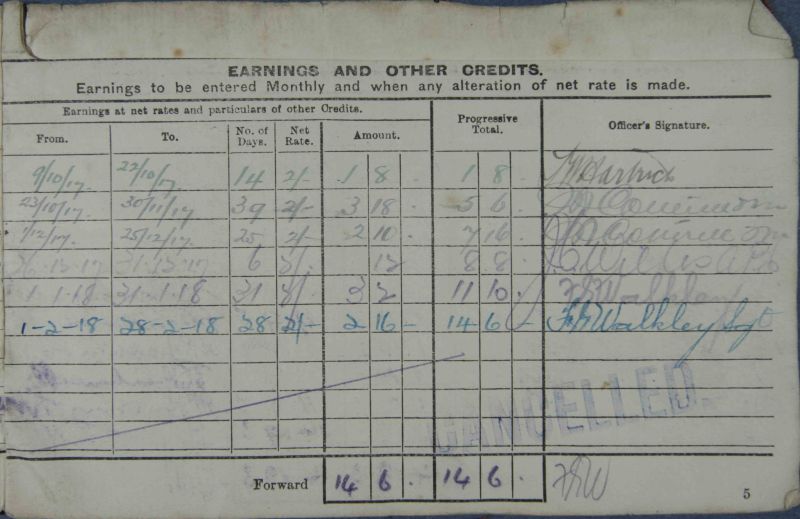 EARNINGS AND OTHER CREDITS.
Earnings to be entered Monthly and when any alteration of net rate is made.
Earnings at net rates and particulars of other Credits.
From. To. No. of Days. Net Rate. Amount. Progressive Total. Officer's Signature.
9/10/17. 22/10/17. 14 2/- 1 8 . 1 8 .
23/10/17. 30/11/17 39 2/- 3 18 5 6
1/12/17. 25/12/17. 25 2/- 2 10 7 16
26-12-17 31-12-17 6 2/- 12 8 8
1-1-18 31-1-18 31 2/- 3 2 11 10
1-2-18 28-2-18 28 2/- 2 16 - 14 6 - Walkley Sgt
CANCELLED.
Forward 14 6 . 14 6 .
5